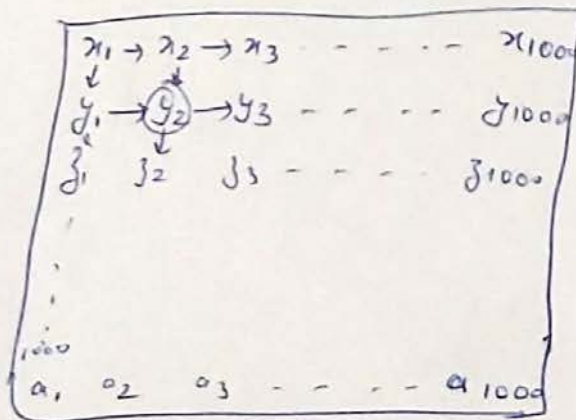 x₁ → x₂ → x₃ - - - - - x₁₀₀₀
↓ ↓
y₁ → y₂ → y₃ - - - - y₁₀₀₀
↓
z₁ z₂ z₃ - - - - z₁₀₀₀
1000
a₁ a₂ a₃ - - - - a₁₀₀₀